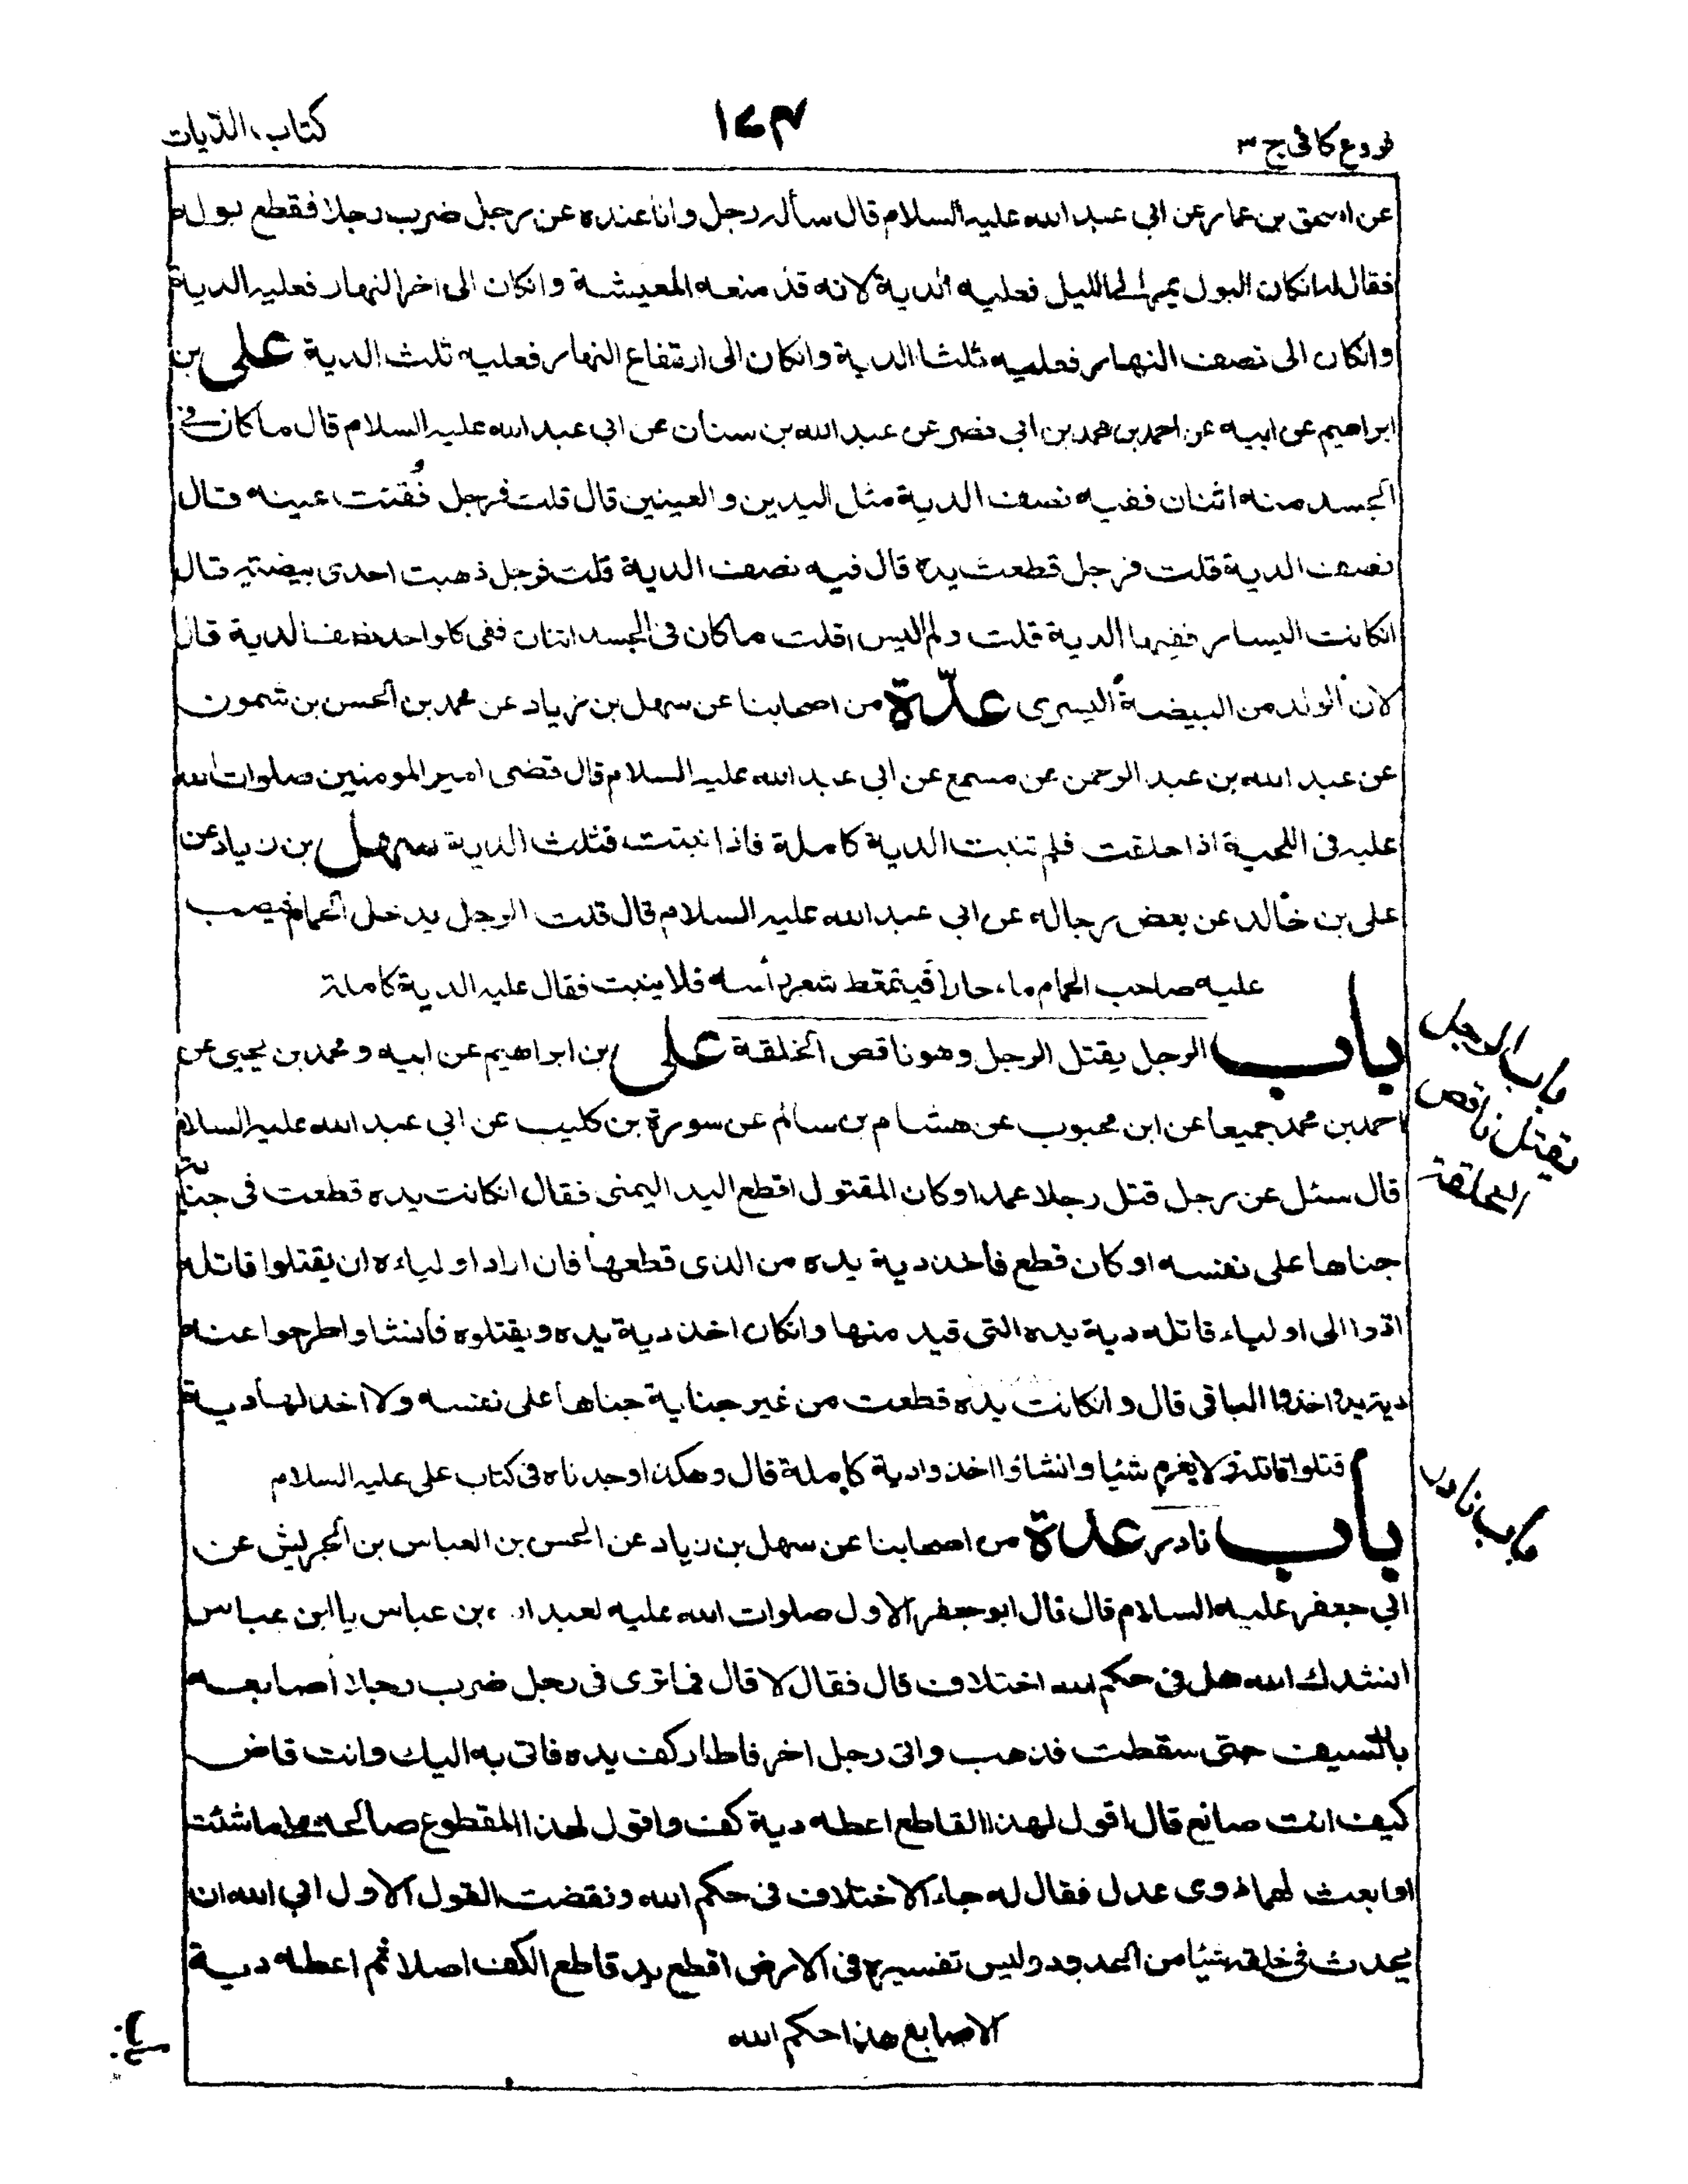 فروع كافى ج ٣
كتاب الديات
عن اسحق بن عمار عن ابي عبد الله عليه السلام قال سأله رجل وانا عنده عن رجل ضرب رجلا فقطع بوله
فقال له انكان البول يمر الى الليل فعليه الدية لانه قد منعه المعيشة وانكان الى اخر النهار فعليه الدية
وانكان الى نصف النهار فعليه ثلثا الدية وانكان الى ارتفاع النهار فعليه ثلث الدية على بن
ابراهيم عن ابيه عن احمد بن محمد بن ابي نصر عن عبد الله بن سنان عن ابي عبد الله عليه السلام قال ما كان في
الجسد منه اثنان ففيه نصف الدية مثل اليدين والعينين قال قلت فرجل فُقئت عينه قال
نصف الدية قلت فرجل قطعت يده قال فيه نصف الدية قلت فرجل ذهبت احدى بيضتيه قال
انكانت اليسار ففيها الدية قلت ولم اليس قلت ما كان في الجسد اثنان ففي كل واحد نصف الدية قال
لان الولد من البيضة اليسرى عدّة من اصحابنا عن سهل بن زياد عن محمد بن الحسن بن شمون
عن عبد الله بن عبد الرحمن عن مسمع عن ابي عبد الله عليه السلام قال قضى امير المومنين صلوات الله
عليه فى اللحية اذا حلقت فلم تنبت الدية كاملة فاذا نبتت فثلث الدية سهل بن زياد عن
على بن خالد عن بعض رجاله عن ابي عبد الله عليه السلام قال قلت الرجل يدخل الحمام فيصب
عليه صاحب الحمام ماء حارا فيتمعط شعر رأسه فلا ينبت فقال عليه الدية كاملة
باب الرجل يقتل الرجل وهو ناقص الخلقة على بن ابراهيم عن ابيه ومحمد بن يحيى عن
احمد بن محمد جميعا عن ابن محبوب عن هشام بن سالم عن سورة بن كليب عن ابي عبد الله عليه السلام
قال سئل عن رجل قتل رجلا عمدا وكان المقتول اقطع اليد اليمنى فقال انكانت يده قطعت فى جناية
جناها على نفسه او كان قطع فأخذ دية يده من الذى قطعها فان اراد اولياءه ان يقتلوا قاتله
ادوا الى اولياء قاتله دية يده التى قيد منها وانكان اخذ دية يده ويقتلوه فأنشاوا طرحوا عنه
دية يده واخذوا الباقى قال وانكانت يده قطعت من غير جناية جناها على نفسه ولا اخذ لها دية
قتلوا قاتله ولا يغرم شئيا وانشاؤا اخذوا دية كاملة قال وهكذا وجدناه فى كتاب على عليه السلام
باب نادر عدة من اصحابنا عن سهل بن زياد عن الحسن بن العباس بن الجريش عن
ابي جعفر عليه السلام قال قال ابو جعفر الاول صلوات الله عليه لعبد الله بن عباس يا ابن عباس
انشدك الله هل فى حكم الله اختلاف قال فقال لا قال فما ترى فى رجل ضرب رجلا أصابعه
بالسيف حتى سقطت فذهب واتى رجل اخر فاطار كف يده فاتى به اليك وانت قاض
كيف انت صانع قال اقول لهذا القاطع اعطه دية كف واقول لهذا المقطوع صالحه على ما شئت
او ابعث لهما ذوى عدل فقال له جاء الاختلاف فى حكم الله ونقضت القول الاول ابي الله ان
يحدث في خلقه شيئا من الحدود وليس تفسيره فى الارض اقطع يد قاطع الكف اصلا ثم اعطه دية
الاصابع هذا حكم الله
باب الرجل
يقتل ناقص
الخلقة
باب نادر